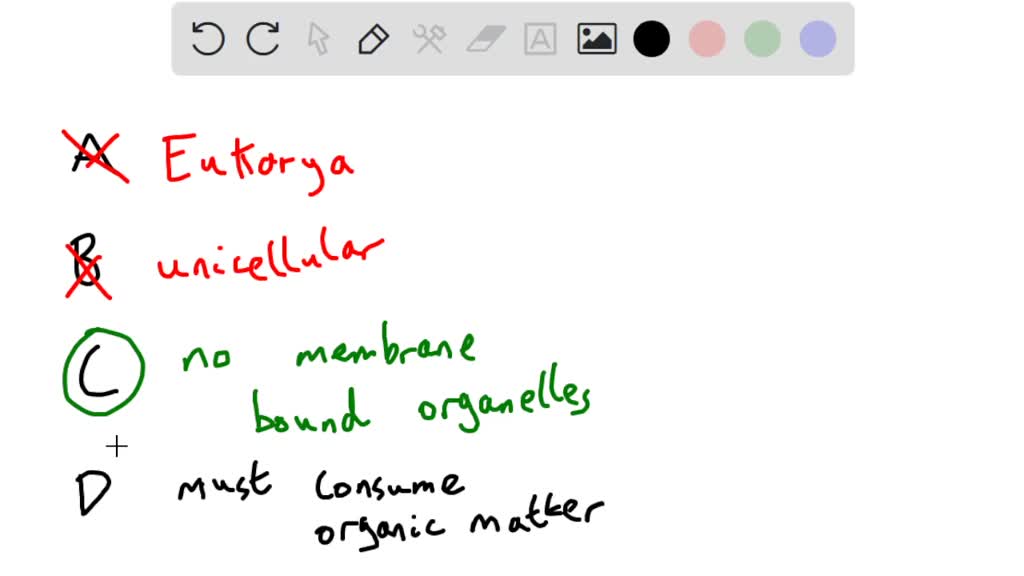 A Eukarya
B unicellular
C no membrane
bound organelles
D must consume
organic matter